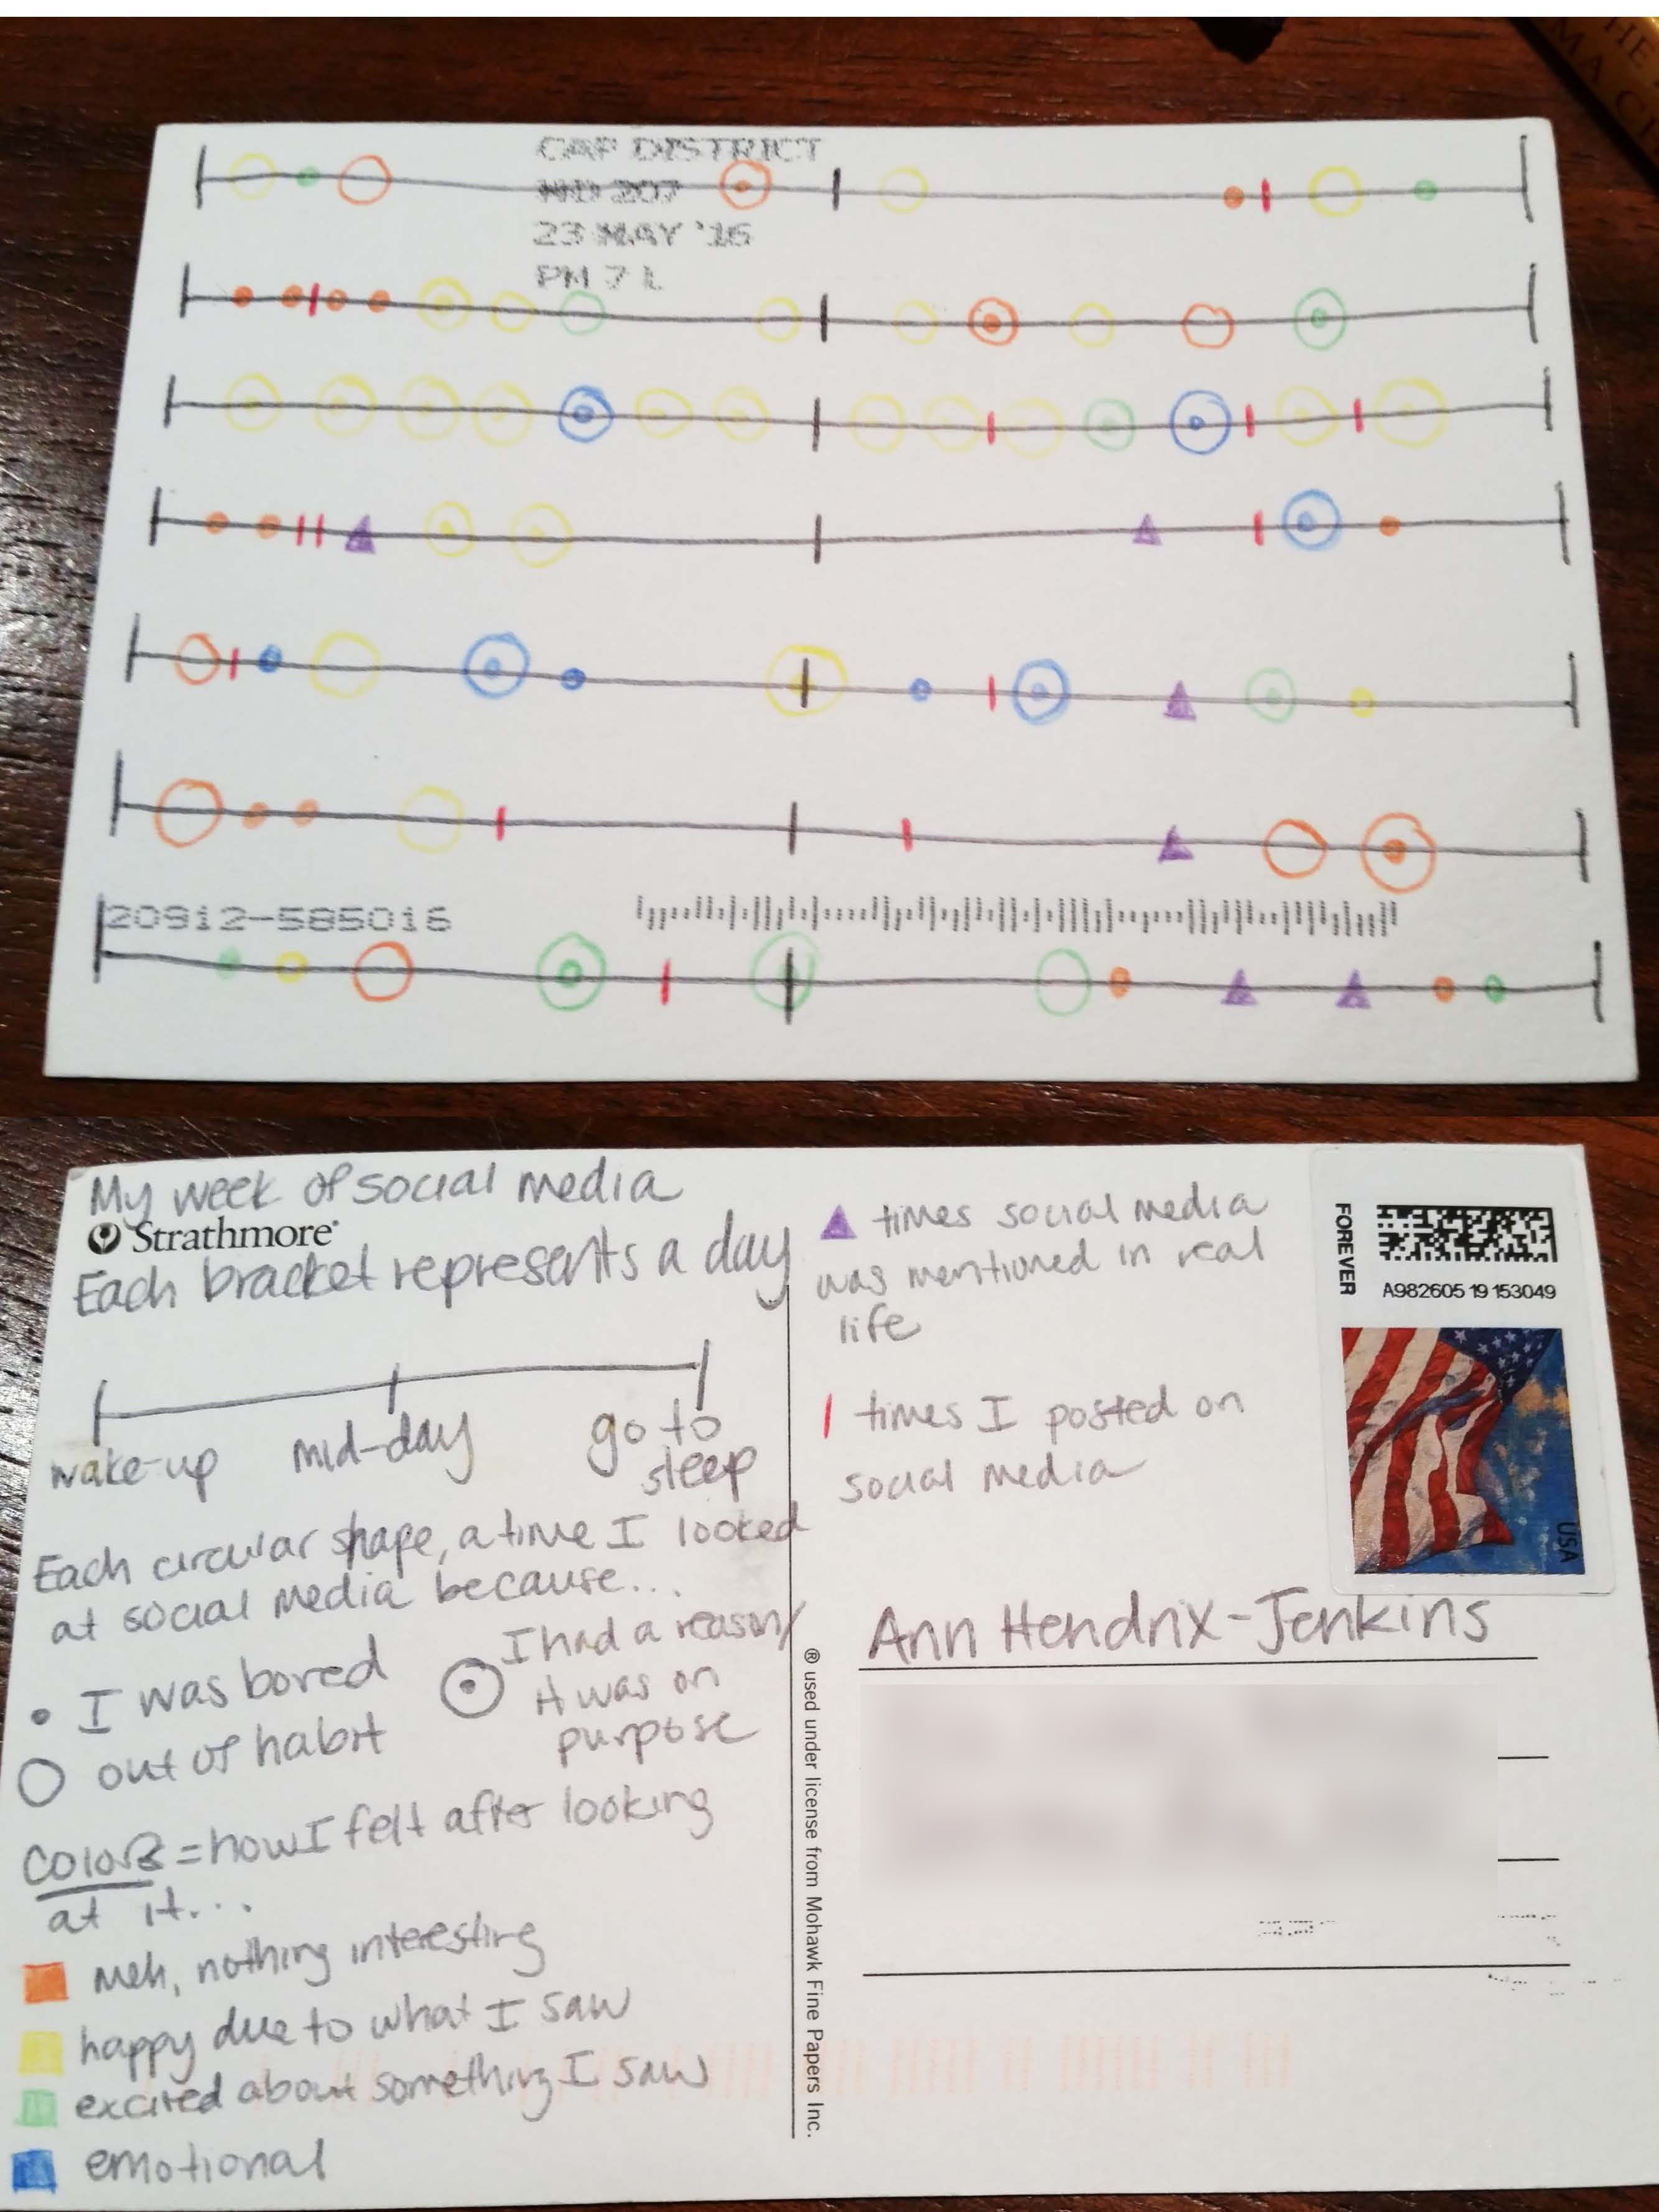 HE
MA CI
CAP DISTRICT
MD 207
23 MAY '16
PM 7 L
20912-585016
My week of social media
Strathmore®
Each bracket represents a day
wake-up mid-day go to
sleep
Each circular shape, a time I looked
at social media because...
• I was bored
O out of habit
I had a reason/
it was on
purpose
Colors = how I felt after looking
at it...
meh, nothing interesting
happy due to what I saw
excited about something I saw
emotional
times social media
was mentioned in real
life
times I posted on
social media
FOREVER
A982605 19 153049
USA
Ann Hendrix-Jenkins
® used under license from Mohawk Fine Papers Inc.